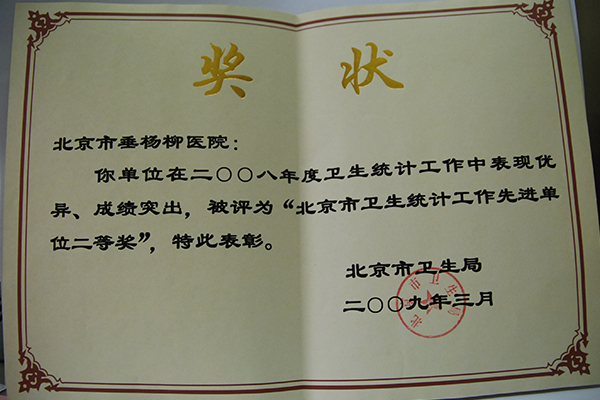 奖 状
北京市垂杨柳医院：
你单位在二〇〇八年度卫生统计工作中表现优
异、成绩突出，被评为“北京市卫生统计工作先进单
位二等奖”，特此表彰。
北京市卫生局
二〇〇九年三月